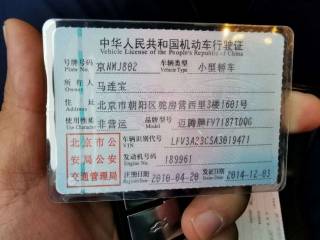 中华人民共和国机动车行驶证
Vehicle License of the People's Republic of China
号牌号码 京NWJ802 车辆类型 小型轿车
Plate No. Vehicle Type
所有人 马连宝
Owner
住址 北京市朝阳区驼房营西里3楼1601号
Address
使用性质 非营运 品牌型号 迈腾牌FV7187TDQG
Use Character Model
北京市公 车辆识别代号 LFV3A23C5A3019471
安局公安 VIN
交通管理局 发动机号码 189961
Engine No.
注册日期 2010-04-20 发证日期 2014-12-03
Register Date Issue Date